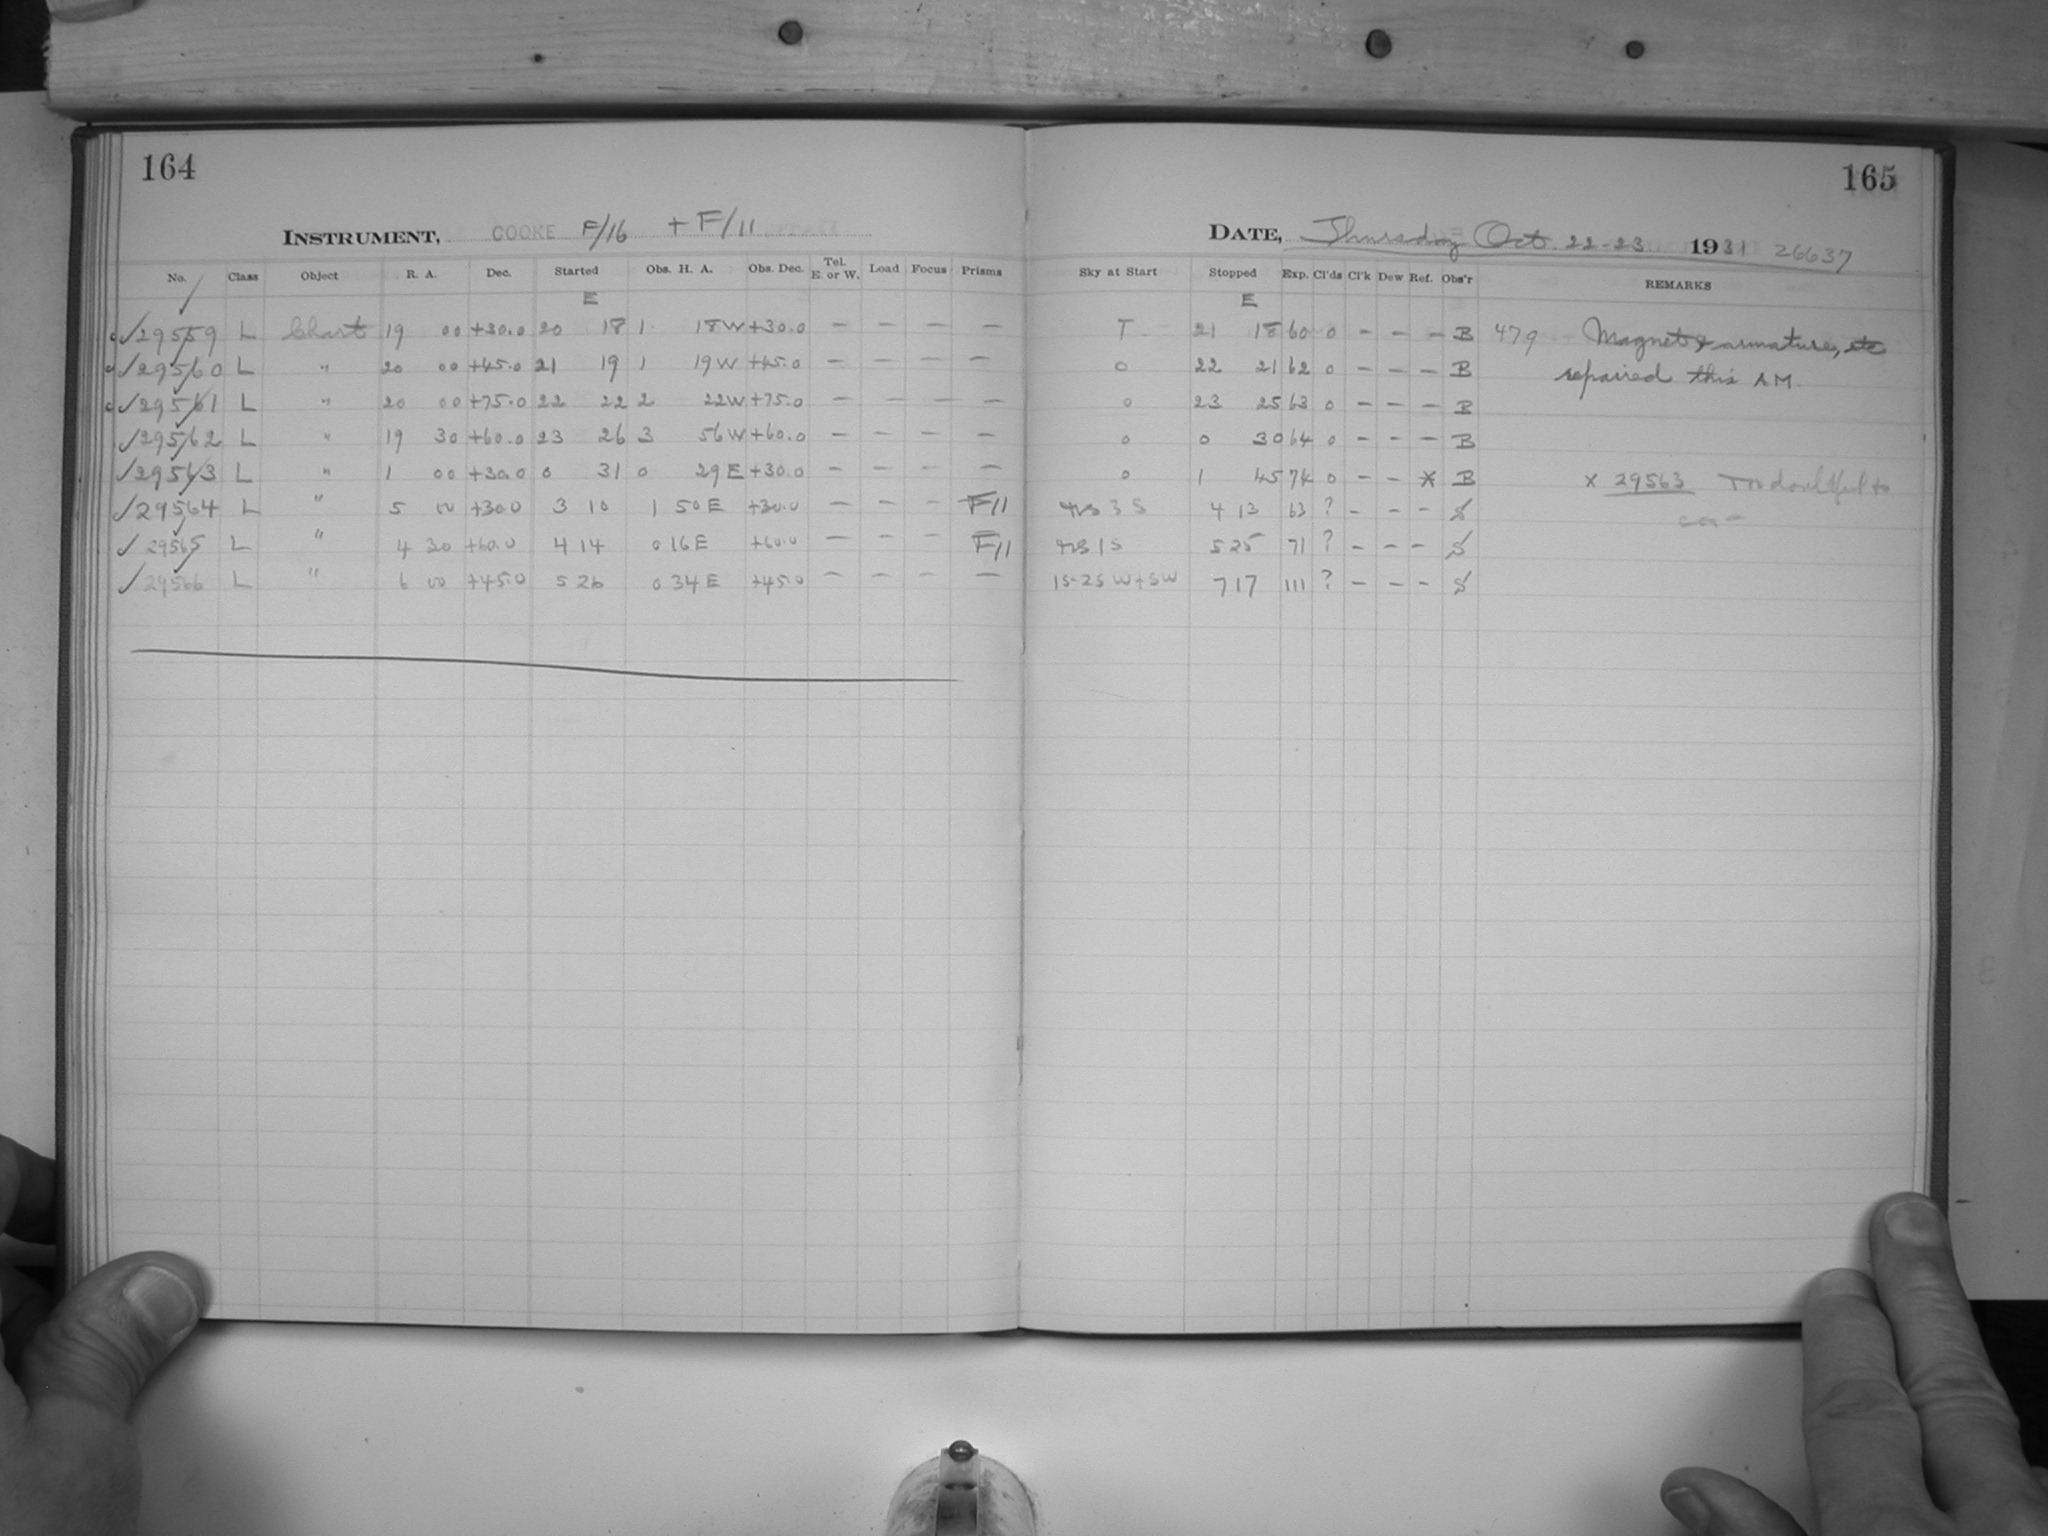 164
165
INSTRUMENT, COOKE F/16 + F/11
DATE, Thursday Oct. 22-23 1931 26637
No. Class Object R. A. Dec. Started Obs. H. A. Obs. Dec. Tel. E. or W. Load Focus Prisms Sky at Start Stopped Exp. Cl'ds Cl'k Dew Ref. Obs'r REMARKS
E E
✓29559 L Chart 19 00 +30.0 20 18 1 18W +30.0 – – – – T 21 18 60 0 – – – B 479 Magnet & armature, etc
✓29560 L " 20 00 +45.0 21 19 1 19W +45.0 – – – – 0 22 21 62 0 – – – B repaired this A.M.
✓29561 L " 20 00 +75.0 22 22 2 22W +75.0 – – – – 0 23 25 63 0 – – – B
✓29562 L " 19 30 +60.0 23 26 3 56W +60.0 – – – – 0 0 30 64 0 – – – B
✓29563 L " 1 00 +30.0 0 31 0 29E +30.0 – – – – 0 1 45 74 0 – – * B x 29563 Too doubtful to
✓29564 L " 5 00 +30.0 3 10 1 50E +30.0 – – – F11 3 S 4 13 63 ? – – – S
✓29565 L " 4 30 +60.0 4 14 0 16E +60.0 – – – F11 1 S 5 25 71 ? – – – S
✓29566 L " 6 00 +45.0 5 26 0 34E +45.0 – – – – 1S-2S W+SW 7 17 111 ? – – – S